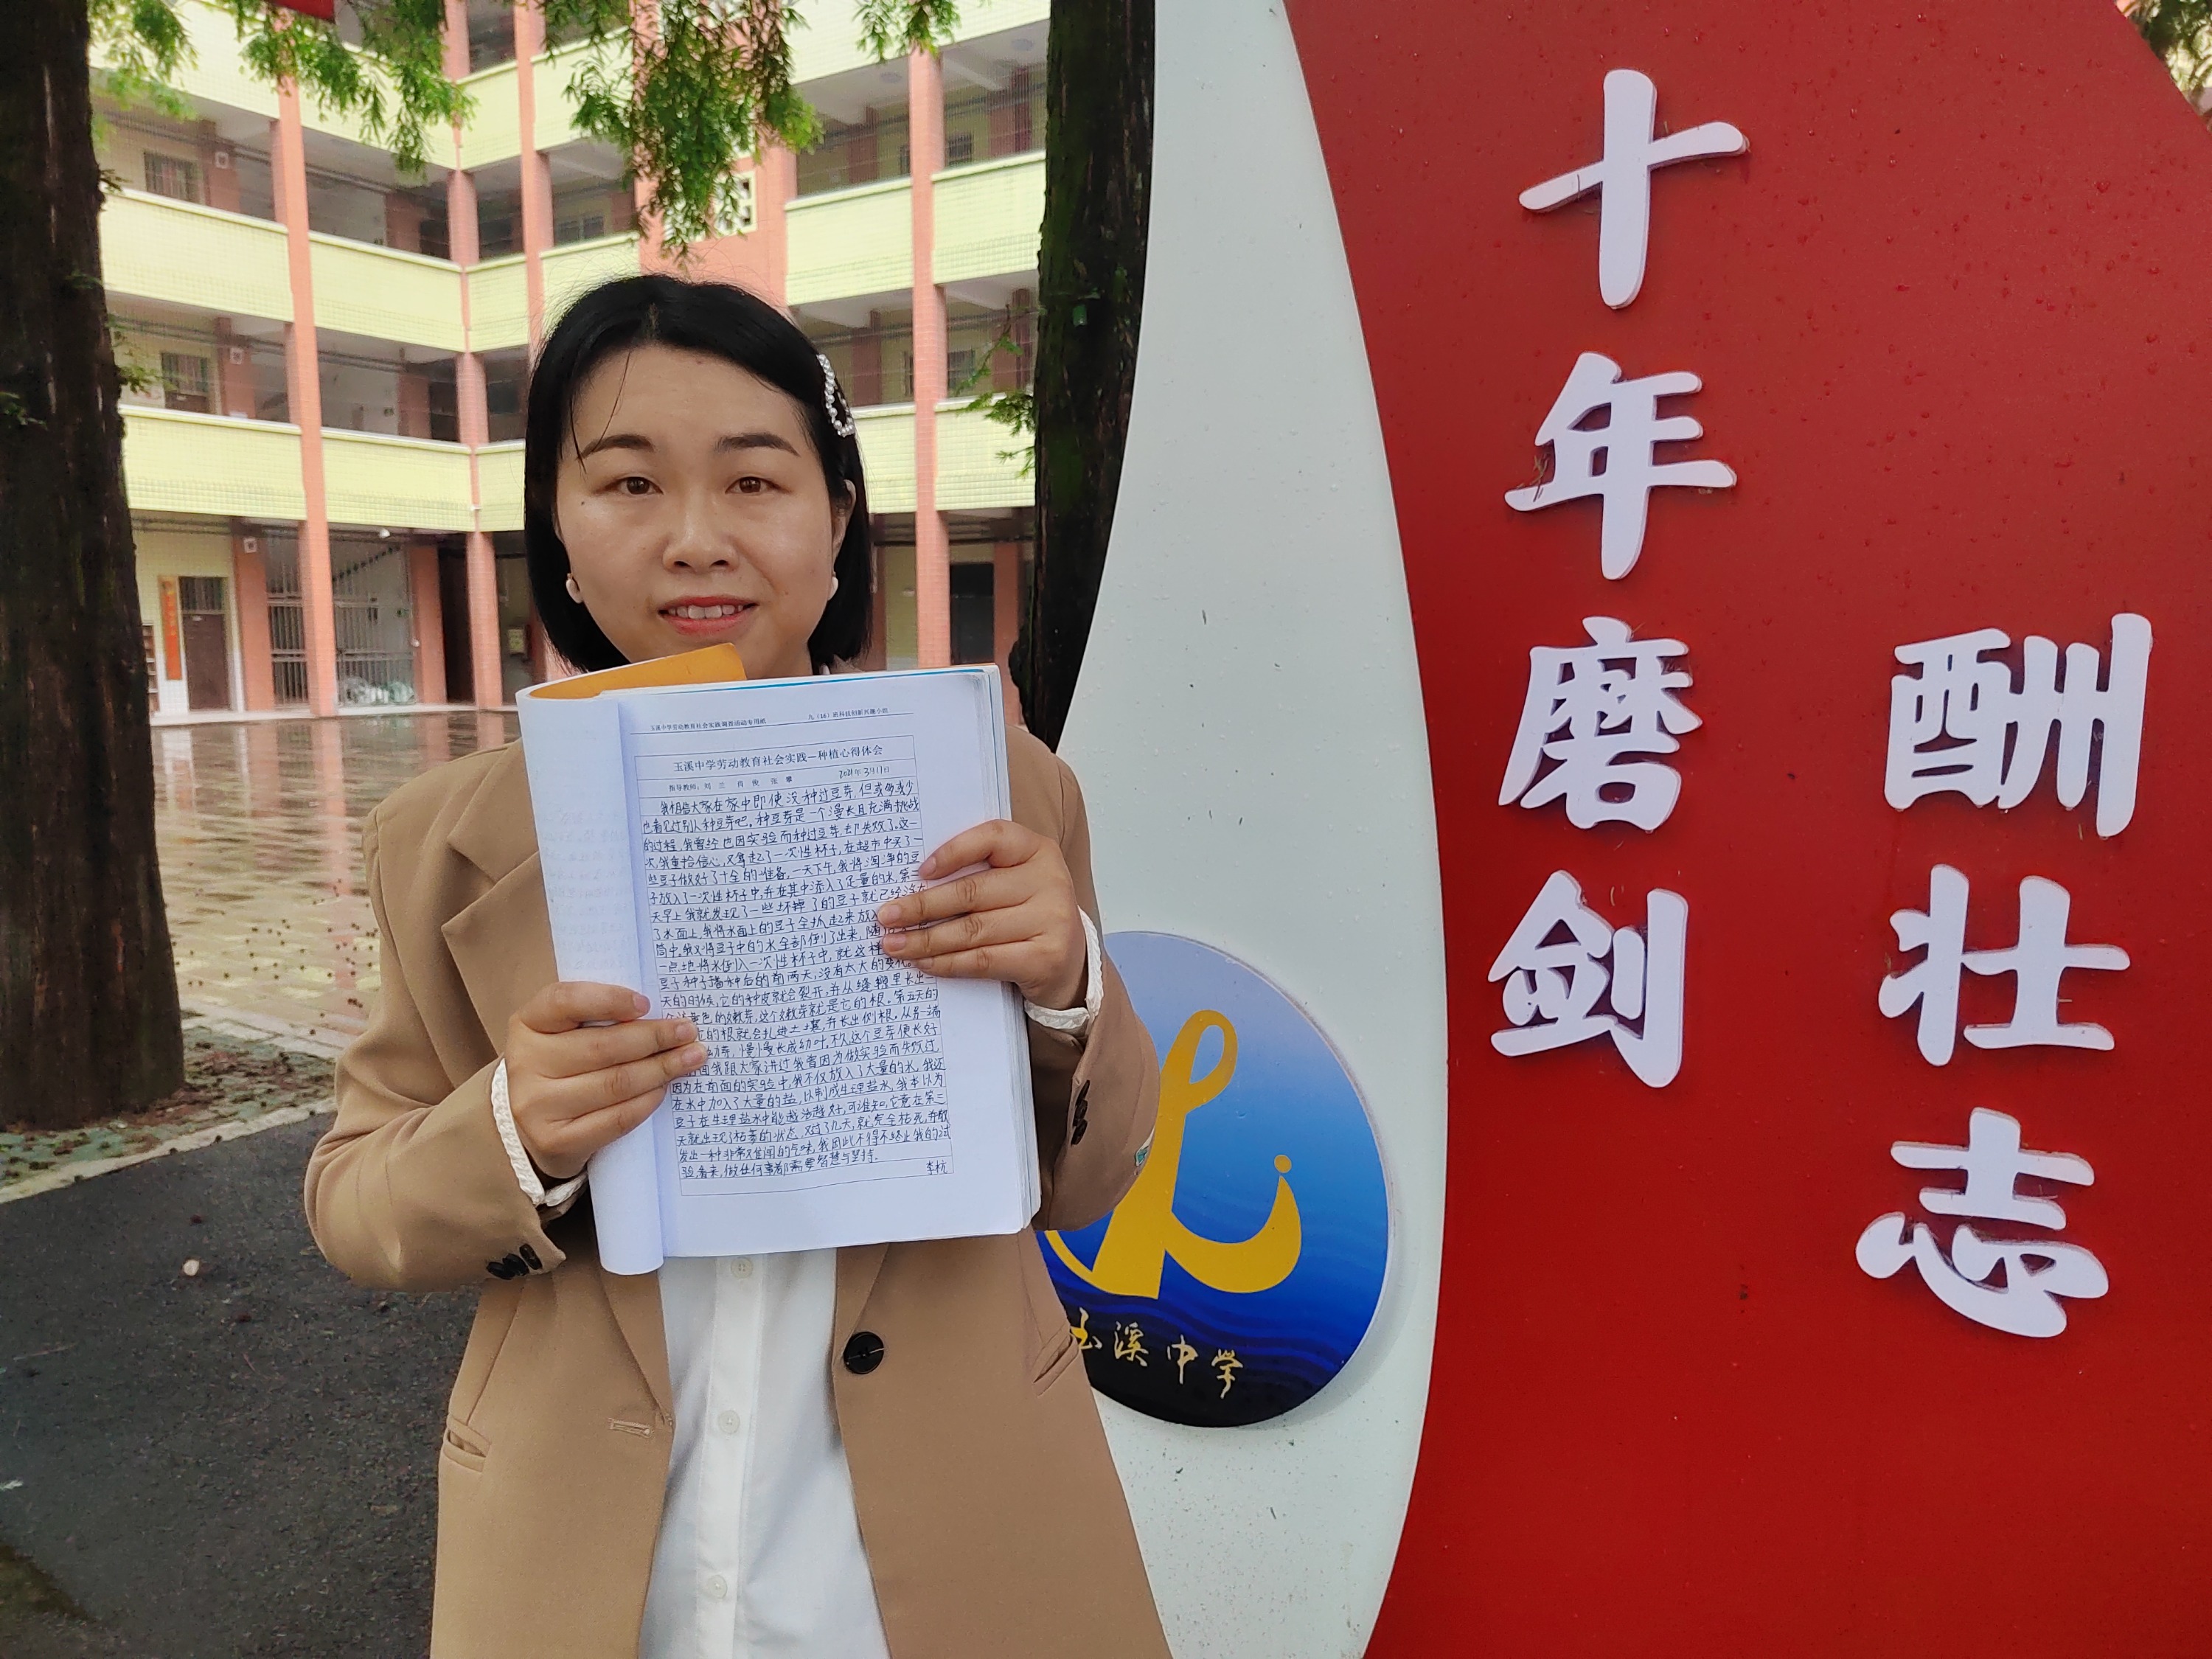 玉溪中学劳动教育社会实践调查活动专用纸 九（18）班科技创新兴趣小组
玉溪中学劳动教育社会实践—种植心得体会
指导教师：刘 兰 肖 俊 张 攀 2021年3月11日
我相信大家在家中即使没种过豆芽，但或多或少
也看见过别人种豆芽吧。种豆芽是一个漫长且充满挑战
的过程，我曾经也因实验而种过豆芽，却失败了，这一
次，我重拾信心，又拿起了一次性杯子，在超市中买了一
些豆子做好了十全的准备，一天下午，我将淘净的豆
子放入了一次性杯子中，并在其中添入了足量的水，第二
天早上我就发现了一些坏掉了的豆子就已经浮在
了水面上，我将水面上的豆子全抓起来放入
筒中，我又将豆子中的水全部倒了出来，随后
一点地将水倒入一次性杯子中，就这样
豆子种子播种后的前两天，没有太大的变化
天的时候，它的种皮就会裂开，并从缝隙里长出一
黄色的嫩芽，这个嫩芽就是它的根。第五天的
的根就会扎进土壤，并长出侧根。从另一端
幼芽，慢慢长成幼叶，不久，这个豆芽便长好
面我跟大家讲过我曾因为做实验而失败过，
因为在前面的实验中，我不仅放入了大量的水，我还
在水中加入了大量的盐，以制成生理盐水，我本以为
豆子在生理盐水中能越活越好，可谁知，它竟在第三
天就出现了枯萎的状态，又过了几天，就完全枯死，并散
发出一种非常难闻的气味，我因此不得不终止我的试
验。看来，做任何事都需要智慧与坚持。
李杭
十年磨剑
酬壮志
玉溪中学